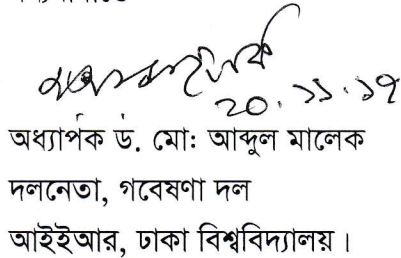 ২০.১১.১৭
অধ্যাপক ড. মো: আব্দুল মালেক
দলনেতা, গবেষণা দল
আইইআর, ঢাকা বিশ্ববিদ্যালয়।